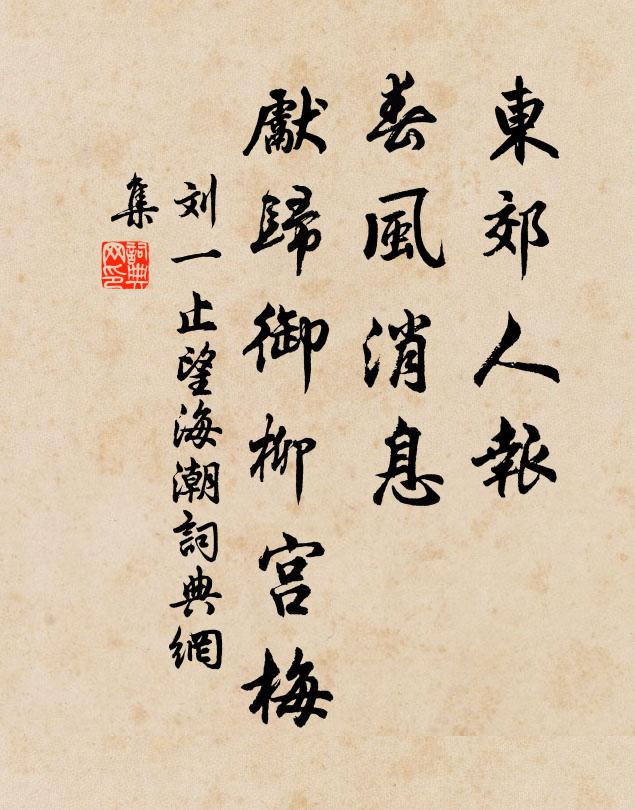 東郊人報
春風消息
獻歸御柳宫梅
刘一止望海潮詞典網
集
詞典
网印